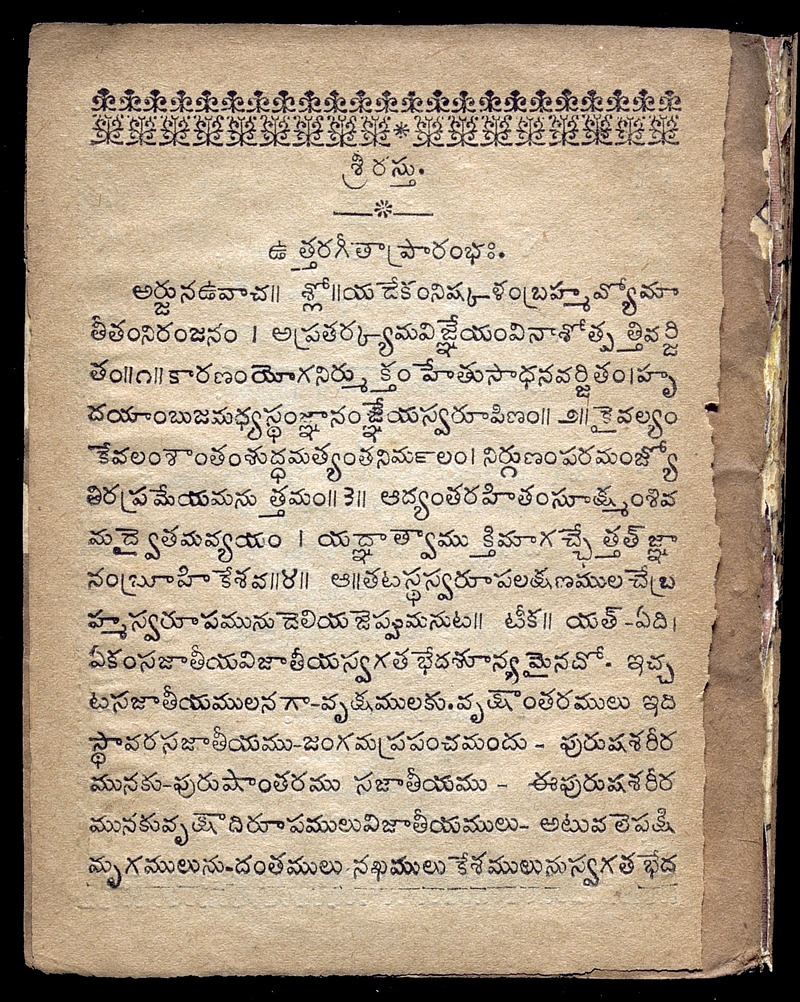 శ్రీరస్తు.
ఉత్తరగీతాప్రారంభః.
అర్జునఉవాచ॥ శ్లో॥యదేకంనిష్కళంబ్రహ్మవ్యోమా
తీతంనిరంజనం । అప్రతర్క్యమవిజ్ఞేయంవినాశోత్పత్తివర్జి
తం॥౧॥కారణంయోగనిర్ముక్తం హేతుసాధనవర్జితం।హృ
దయాంబుజమధ్యస్థంజ్ఞానంజ్ఞేయస్వరూపిణం॥ ౨॥ కైవల్యం
కేవలంశాంతంశుద్ధమత్యంతనిమ౯లం। నిర్గుణంపరమంజ్యో
తిరప్రమేయమనుత్తమం॥ ౩॥ ఆద్యంతరహితంసూక్ష్మంశివ
మద్వైతమవ్యయం । యద్జ్ఞాత్వాముక్తిమాగచ్ఛేత్తత్ జ్ఞా
నంబ్రూహి కేశవ॥౪॥ ఆ॥తటస్థస్వరూపలక్షణములచేబ్ర
హ్మస్వరూపమును డెలియజెప్పుమనుట॥ టీక॥ యత్-ఏది।
ఏకంసజాతీయవిజాతీయస్వగత భేదశూన్యమైనదో. ఇచ్చ
టసజాతీయములనగా-వృక్షములకు.వృక్షాంతరములు ఇది
స్థావరసజాతీయము-జంగమప్రపంచమందు - పురుషశరీర
మునకు-పురుషాంతరము సజాతీయము - ఈపురుషశరీర
మునకువృక్షాదిరూపములువిజాతీయములు- అటువలెపక్షి
మృగములును-దంతములు నఖములు కేశములునుస్వగత భేద